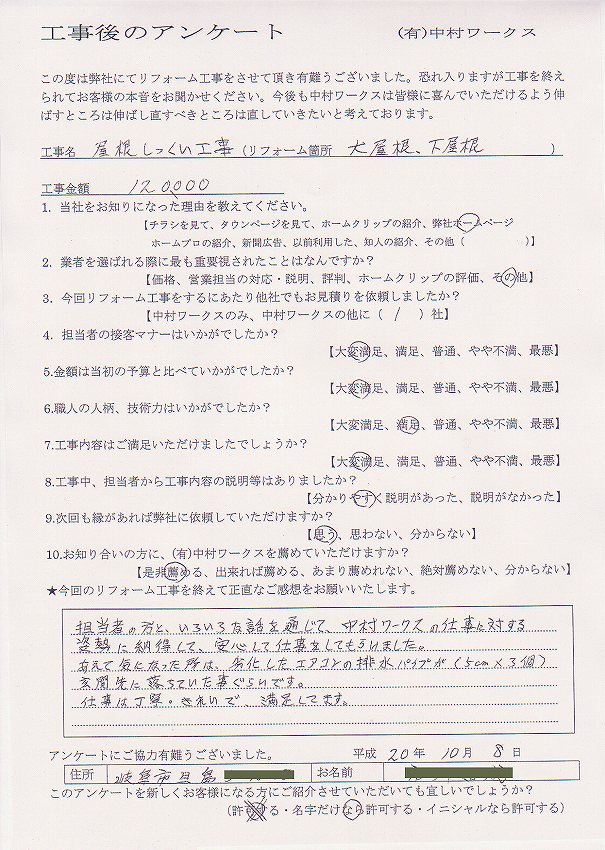 工事後のアンケート (有)中村ワークス
この度は弊社にてリフォーム工事をさせて頂き有難うございました。恐れ入りますが工事を終え
られてお客様の本音をお聞かせください。今後も中村ワークスは皆様に喜んでいただけるよう伸
ばすところは伸ばし直すべきところは直していきたいと考えております。
工事名 屋根しっくい工事 (リフォーム箇所 大屋根、下屋根 )
工事金額 120,000
1. 当社をお知りになった理由を教えてください。
【チラシを見て、タウンページを見て、ホームクリップの紹介、弊社ホームページ
ホームプロの紹介、新聞広告、以前利用した、知人の紹介、その他( )】
2. 業者を選ばれる際に最も重要視されたことはなんですか?
【価格、営業担当の対応・説明、評判、ホームクリップの評価、その他】
3. 今回リフォーム工事をするにあたり他社でもお見積りを依頼しましたか?
【中村ワークスのみ、中村ワークスの他に( / )社】
4. 担当者の接客マナーはいかがでしたか?
【大変満足、満足、普通、やや不満、最悪】
5.金額は当初の予算と比べていかがでしたか?
【大変満足、満足、普通、やや不満、最悪】
6.職人の人柄、技術力はいかがでしたか?
【大変満足、満足、普通、やや不満、最悪】
7.工事内容はご満足いただけましたでしょうか?
【大変満足、満足、普通、やや不満、最悪】
8.工事中、担当者から工事内容の説明等はありましたか?
【分かりやすく説明があった、説明がなかった】
9.次回も縁があれば弊社に依頼していただけますか?
【思う、思わない、分からない】
10.お知り合いの方に、(有)中村ワークスを薦めていただけますか?
【是非薦める、出来れば薦める、あまり薦めれない、絶対薦めない、分からない】
★今回のリフォーム工事を終えて正直なご感想をお願いいたします。
担当者の方と、いろいろな話を通じて、中村ワークスの仕事に対する
姿勢に納得して、安心して仕事をしてもらいました。
あえて気になった所は、劣化したエアコンの排水パイプが(5cm×3個)
玄関先に落ちていた事ぐらいです。
仕事は丁寧・きれいで、満足してます。
アンケートにご協力有難うございました。 平成 20年 10月 8日
住所 岐阜市 お名前
このアンケートを新しくお客様になる方にご紹介させていただいても宜しいでしょうか?
(許可する・名字だけなら許可する・イニシャルなら許可する)